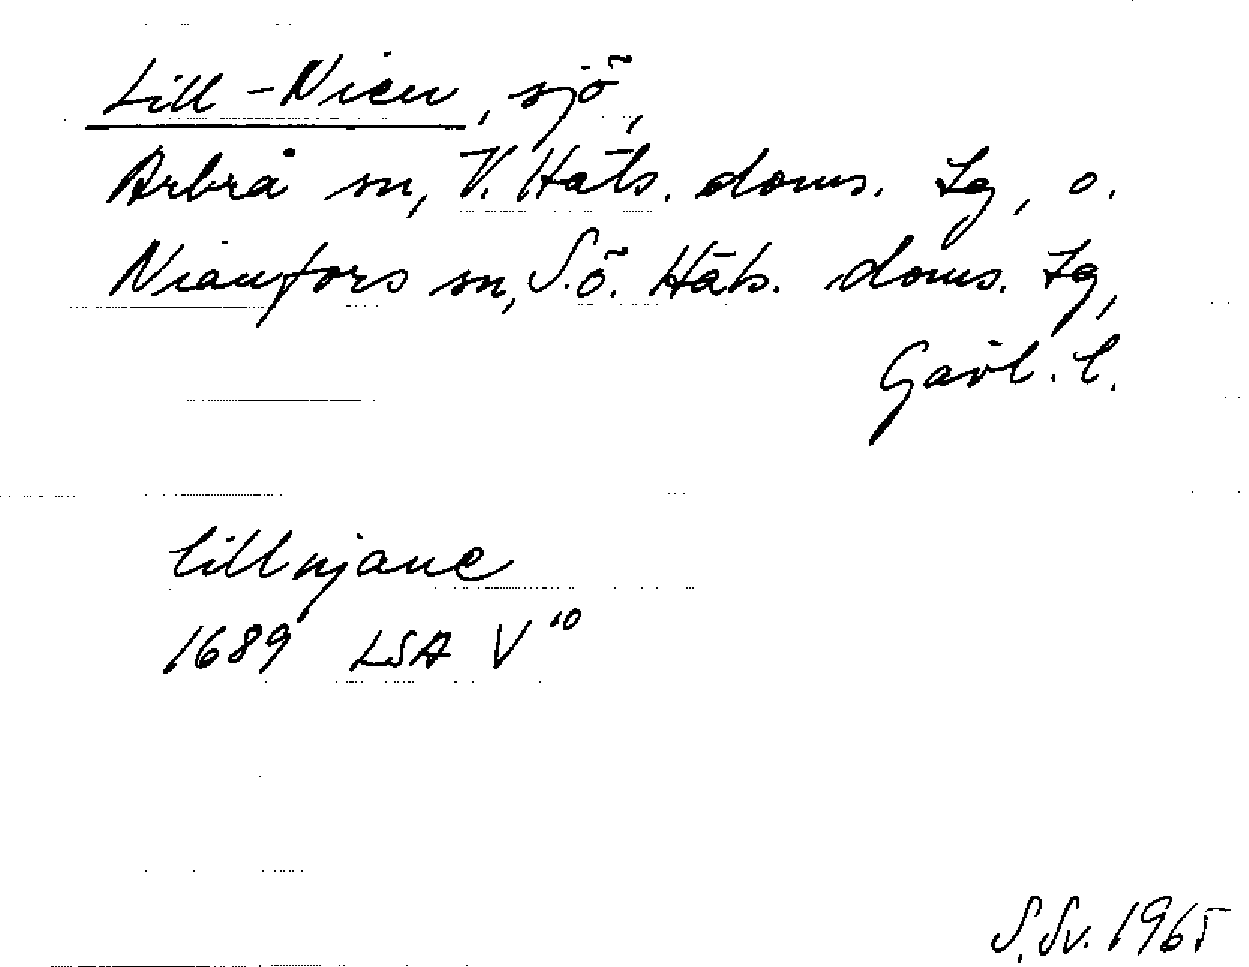 Lill-Nien, sjö,
Arbrå sn, V. Häls. doms. Lg, o.
Nianfors sn, S.ö. Häls. doms. Lg,
Gävl. l.
lillnjane
1689 LSA V¹⁰
S.Sv. 1965